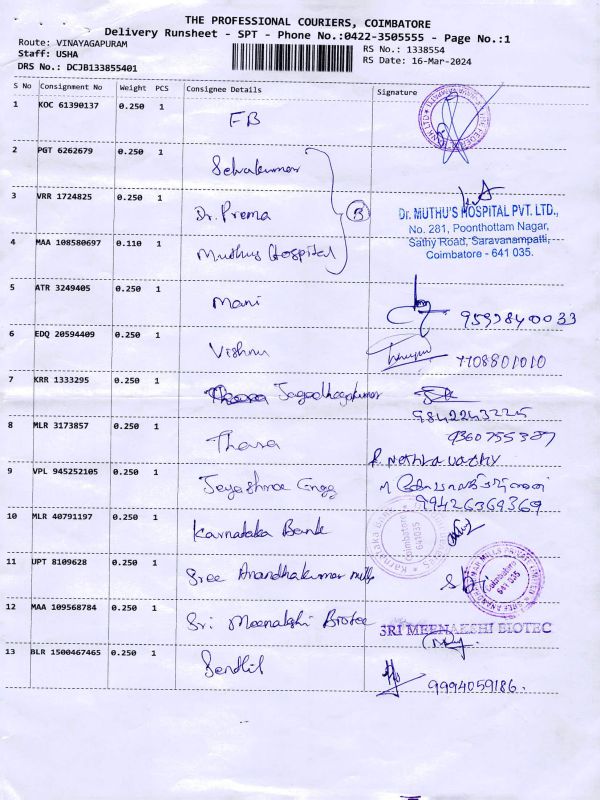 THE PROFESSIONAL COURIERS, COIMBATORE
Delivery Runsheet - SPT - Phone No.:0422-3505555 - Page No.:1
Route: VINAYAGAPURAM
RS No.: 1338554
Staff: USHA
RS Date: 16-Mar-2024
DRS No.: DCJB133855401
S No Consignment No Weight PCS Consignee Details Signature
1 KOC 61390137 0.250 1 FB
2 PGT 6262679 0.250 1 Selvakumar
3 VRR 1724825 0.250 1 Dr. Prema
B
Dr. MUTHU'S HOSPITAL PVT. LTD.,
No. 281, Poonthottam Nagar,
Sathy Road, Saravanampatti,
Coimbatore - 641 035.
4 MAA 108580697 0.110 1 Muthus Hospital
5 ATR 3249405 0.250 1 Mani
6 EDQ 20594409 0.250 1 Vishnu 7708801010
7 KRR 1333295 0.250 1 Jagadhagakumar
9842243225
8 MLR 3173857 0.250 1 Thara 9360755387
9 VPL 945252105 0.250 1 Jayashree Engg
99426369369
10 MLR 40791197 0.250 1 Karnataka Bank
Coimbatore
641035
11 UPT 8109628 0.250 1 Sree Anandhakumar mills
Coimbatore
641 035
12 MAA 109568784 0.250 1 Sri Meenakshi Biotec
SRI MEENAKSHI BIOTEC
13 BLR 1500467465 0.250 1 Sendhil 9994059186.